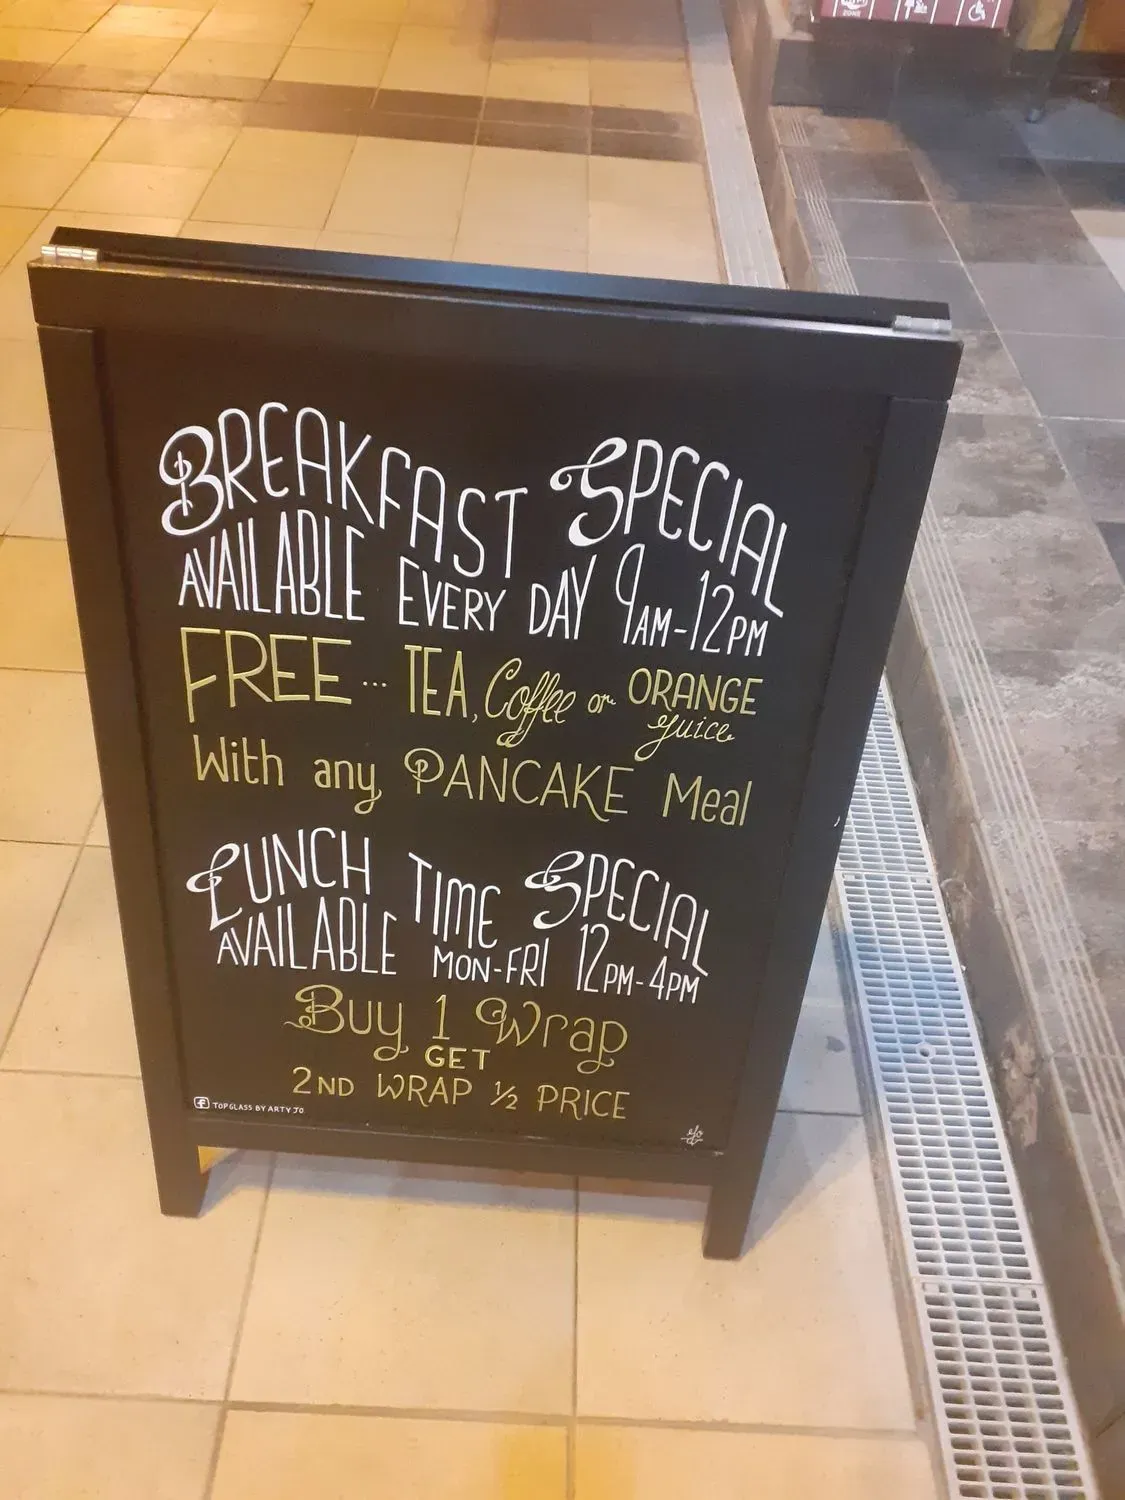 ZONE
BREAKFAST SPECIAL
AVAILABLE EVERY DAY 9AM-12PM
FREE... TEA, Coffee or ORANGE
Juice
With any PANCAKE Meal
LUNCH TIME SPECIAL
AVAILABLE MON-FRI 12PM-4PM
Buy 1 Wrap
GET
2ND WRAP ½ PRICE
TOPGLASS BY ARTY JO